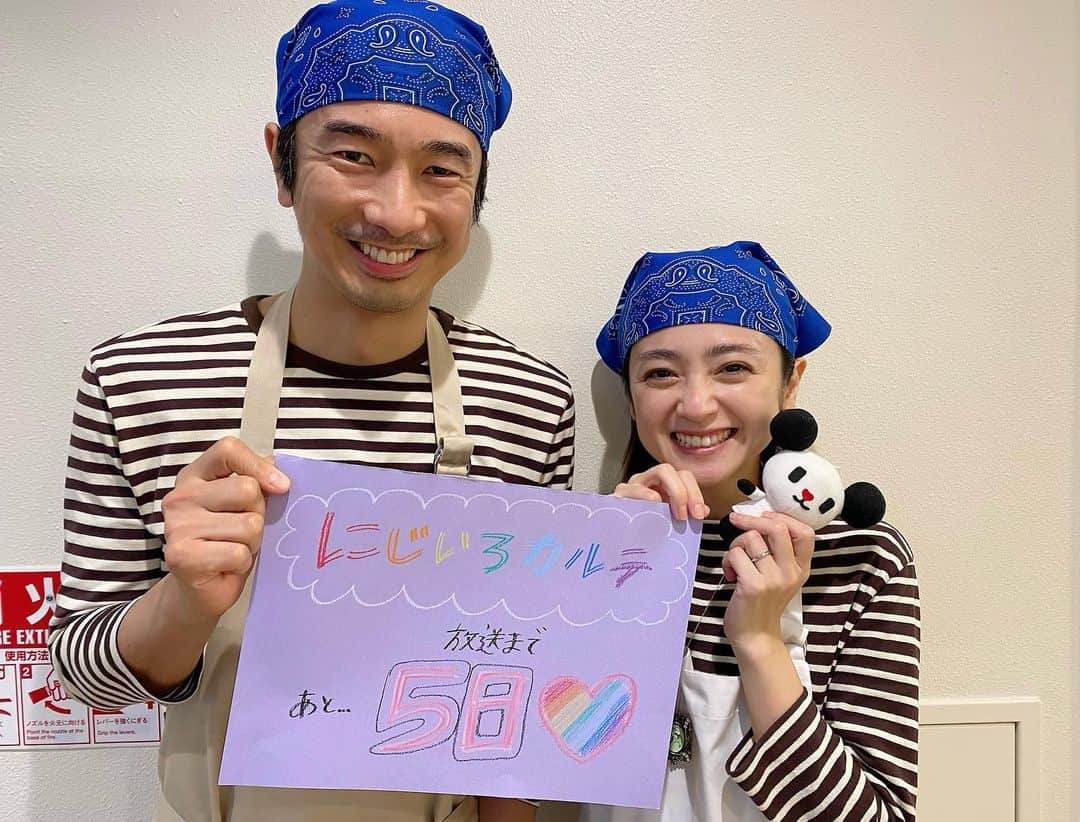 にじいろカルテ
放送まで
あと... 5日
火
RE EXTI
使用方法
2
ノズルを火元に向ける
Point the nozzle at the
base of fire.
レバーを強くにぎる
Grip the levers.